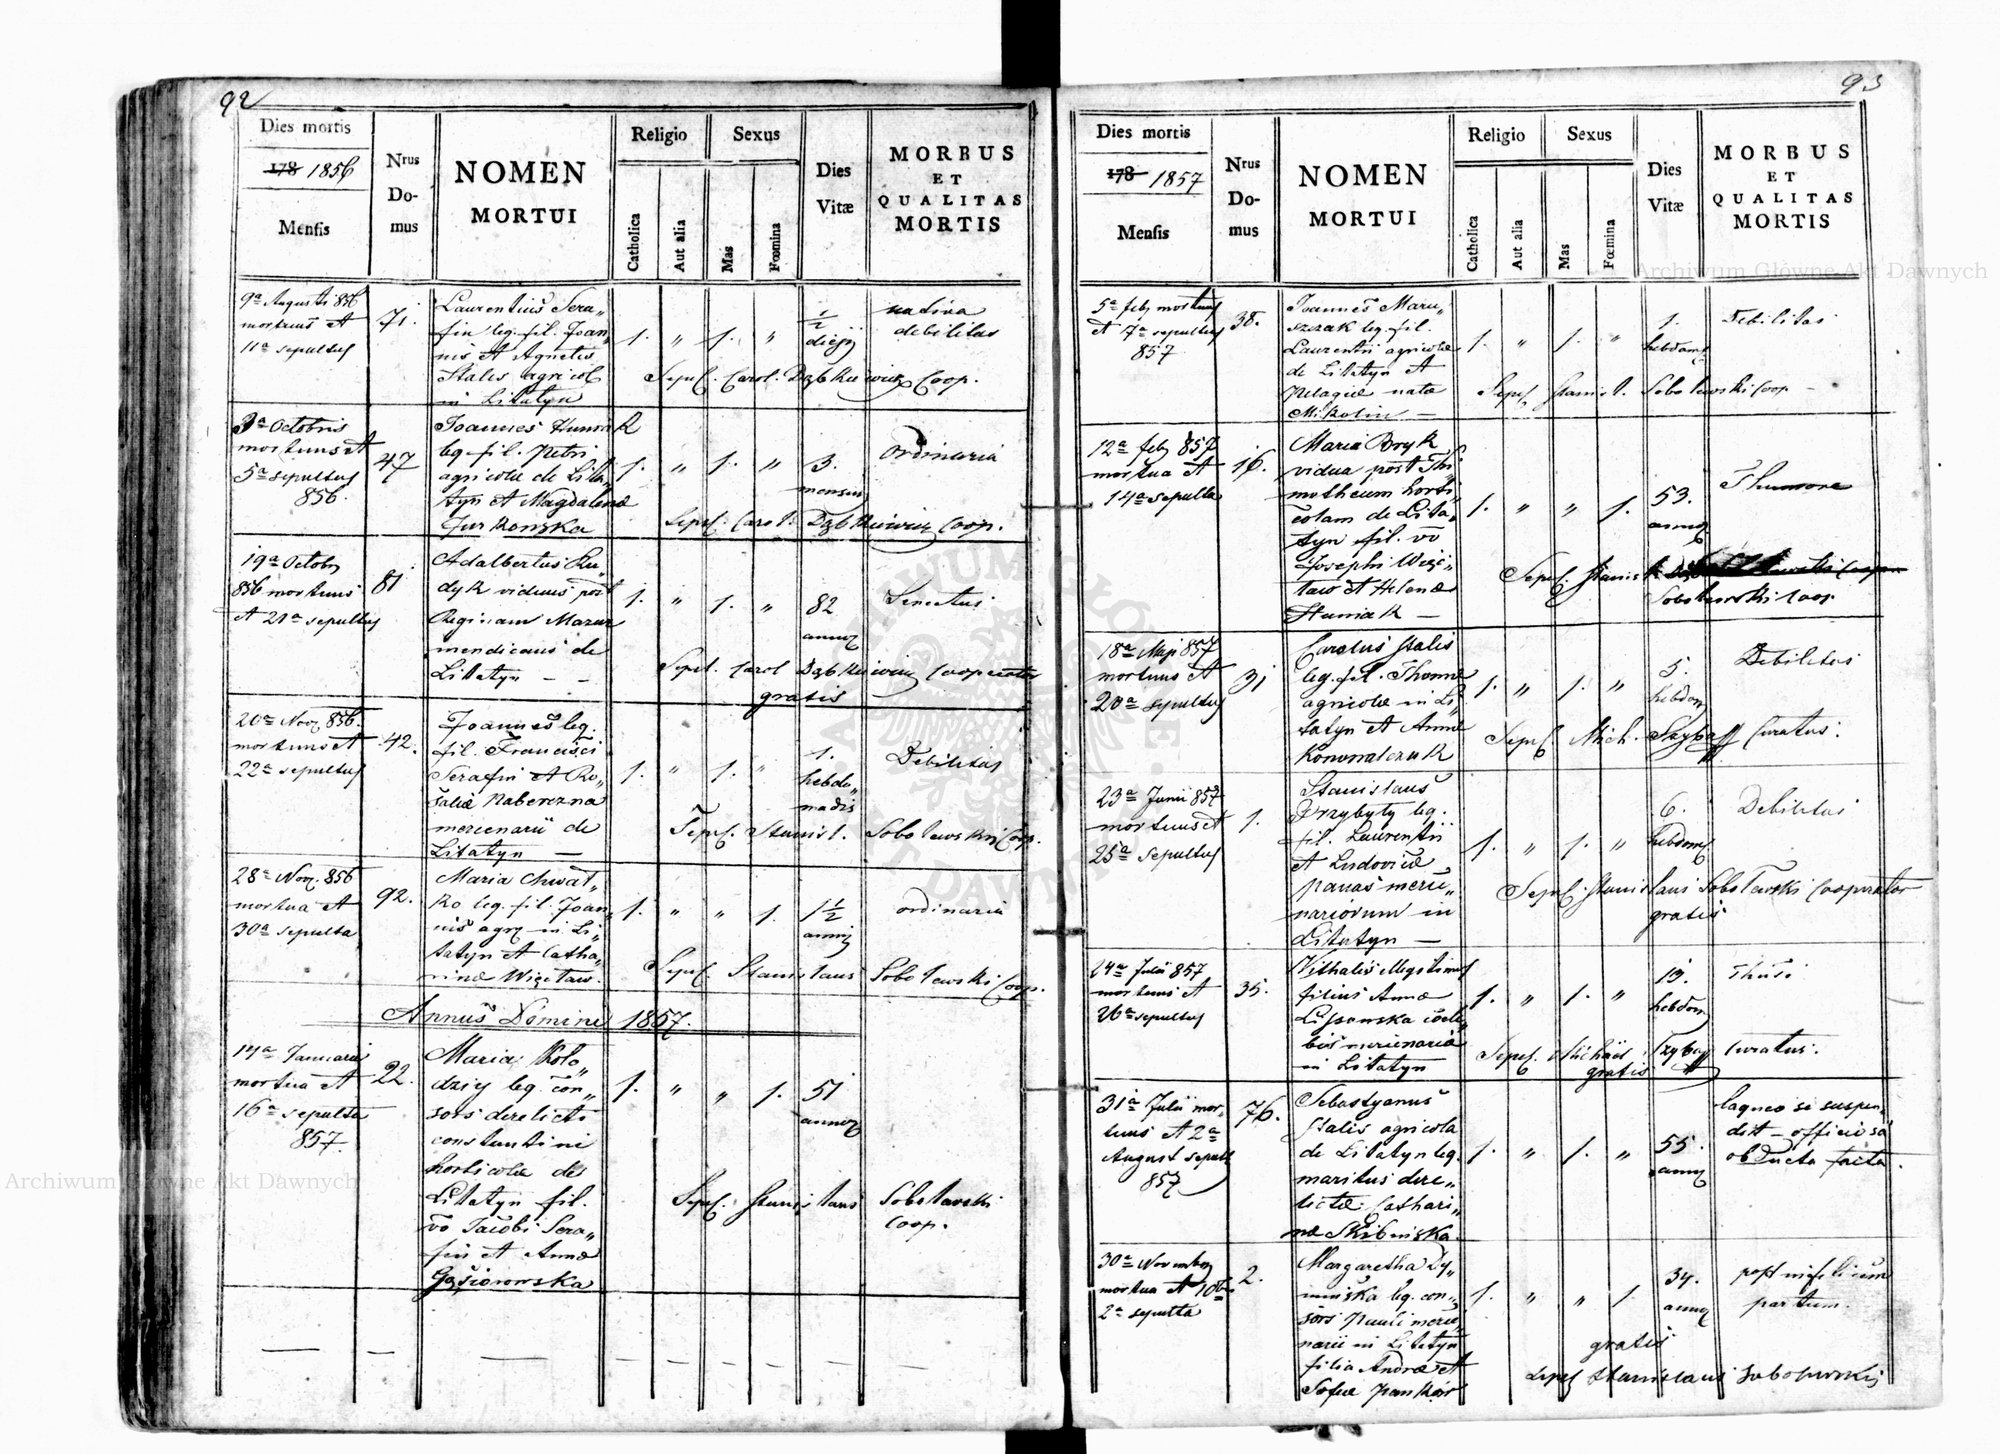 92
Dies mortis
178 1856
Mensis
Nrus
Do-
mus
NOMEN
MORTUI
Religio
Catholica
Aut alia
Sexus
Mas
Fœmina
Dies
Vitæ
MORBUS
ET
QUALITAS
MORTIS
9a Augusti 856
mortuus et
11a sepultus
71.
Laurentius Sera„
fin leg. fil. Joan„
nis et Agnetis
Stalis agricol
in Litatyn
1. „ 1. „
½
nativa
debilitas
Sepel. Carol. Dąbkiewicz Coop.
3a Octobris
mortuus et
5a sepultus
856.
47
Joannes Humak
leg fil. Petri
agricolæ de Lita„
tyn et Magdalenæ
Jurkowska
1. „ 1. „
3.
menses
ordinaria
Sepel. Carol. Dąbkiewicz Coop.
19a Octobr
856 mortuus
et 21a sepultus
81
Adalbertus Ru„
dyk viduus post
Reginam Mazur
mendicans de
Litatyn – –
1. „ 1. „
82
annor
Senectus
Sepel. Carol Dąbkiewicz Cooperator
gratis
20a Nov. 856.
mortuus et
22a sepultus
42.
Joannes leg.
fil. Francisci
Serafin et Ro„
saliæ Naberezna
mercenarii de
Litatyn —
1. „ 1. „
1.
hebdo„
madis
Debilitas
Sepel. Stanisl. Sobolewski Coop.
28a Nov. 856
mortua et
30a sepulta
92.
Maria Chwat„
ko leg. fil. Joan„
nis agr. in Li„
tatyn et Catha„
rinæ Węcław.
1. „ „ 1.
1½
anni
ordinaria
Sepel. Stanislaus Sobolewski Coop.
Annus Domini 1857.
14a Januarii
mortua et
16a sepulta
857.
22.
Maria Koło„
dziy leg. con„
sors derelicti
Constantini
horticolæ de
Litatyn fil.
vo Jacobi Sera„
fin et Annæ
Gąsiorowska
1. „ „ 1.
51
annor
Sepel. Stanislaus Sobolewski
Coop.
93
Dies mortis
178 1857
Mensis
Nrus
Do-
mus
NOMEN
MORTUI
Religio
Catholica
Aut alia
Sexus
Mas
Fœmina
Dies
Vitæ
MORBUS
ET
QUALITAS
MORTIS
5a feb. mortuus
et 7a sepultus
857
38.
Joannes Maru„
szczak leg. fil.
Laurentii agricolæ
de Litatyn et
Pelagiæ natæ
Mikolin —
1. „ 1. „
1.
hebdom
Debilitas
Sepel. Stanisl. Sobolewski Coop –
12a feb. 857
mortua et
14a sepulta
16.
Maria Bryk
vidua post Thi„
motheum horti„
colam de Lita„
tyn fil. vo
Josephi Węc„
ław et Helenæ
Humak —
1. „ „ 1.
53.
annor
Sepel. Stanisl.
Sobolewski Coop
18a Maji 857
mortuus et
20a sepultus
31
Carolus Stalis
leg. fil. Thomæ
agricolæ in Li„
tatyn et Annæ
Konowalczuk
1. „ 1. „
5.
hebdom
Debilitas
Sepel. Mich. Curatus.
23a Junii 857
mortuus et
25a sepultus
1.
Stanislaus
Przybyty leg.
fil. Laurentii
et Ludovicæ
Panas merce„
nariorum in
Litatyn —
1. „ 1. „
6.
hebdom
Debilitas
Sepel. Stanislaus Sobolewski Cooperator
gratis
24a Julii 857
mortuus et
26a sepultus
35.
Vithalis illegitimus
filius Annæ
Lissowska cœle„
bis mercenariæ
in Litatyn
1. „ 1. „
13.
hebdom
Thusi
Sepel. Michael Curatus.
gratis
31a Julii mor„
tuus et 2a
August sepult
857
76.
Sebastyanus
Stalis agricola
de Litatyn leg.
maritus dere„
lictæ Cathari„
næ Skibinska.
1. „ 1. „
55.
annor
laqueo se suspen„
dit – officiosa
obducta facta.
30a Novembr
mortua et 10br
2a sepulta
2.
Margaretha Dy„
minska leg. con„
sors Pauli merce„
narii in Litatyn
filia Andreæ et
Sofiæ
1. „ „ 1
34.
annor
post infelicem
partum.
gratis
Sepel Stanislaus Sobolewski
Archiwum Główne Akt Dawnych
Archiwum Główne Akt Dawnych
ARCHIWUM GŁÓWNE AKT DAWNYCH